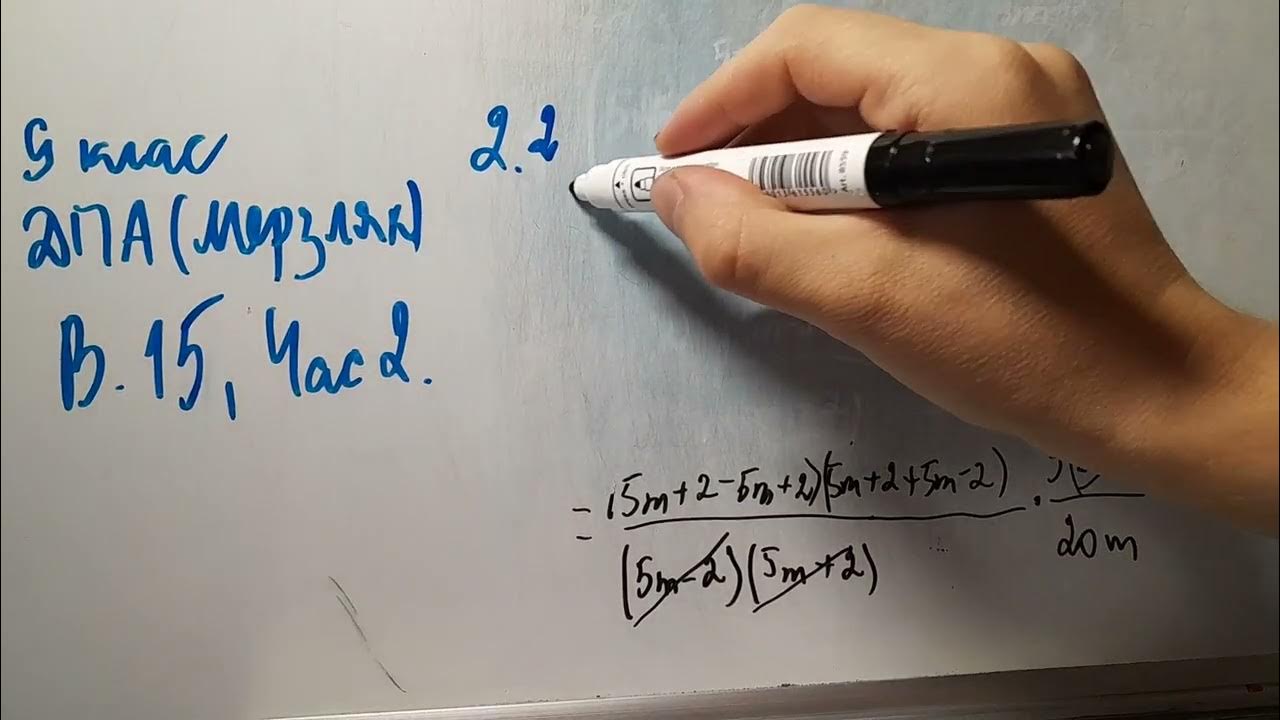 9 клас
2.2
ДПА (Мерзляк)
В. 15, Час 2.
= (5m+2-5m+2)(5m+2+5m-2) ·
(5m-2)(5m+2)
20m